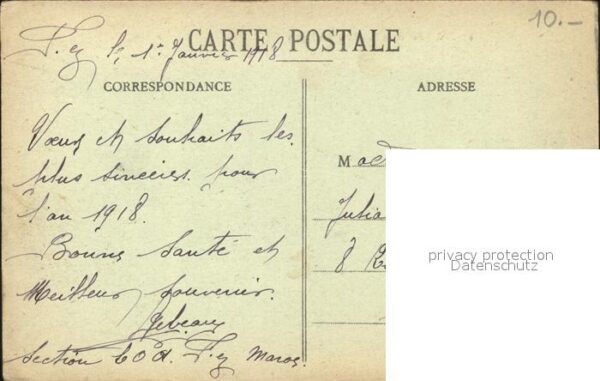 10.-
Fez le 1er Janvier 1918
CARTE POSTALE
CORRESPONDANCE
Vœux et souhaits les
plus sincères pour
l'an 1918.
Bonne Santé et
Meilleur souvenir.
Section C.O.A. Fez Maroc.
ADRESSE
M
Julia
8
privacy protection
Datenschutz